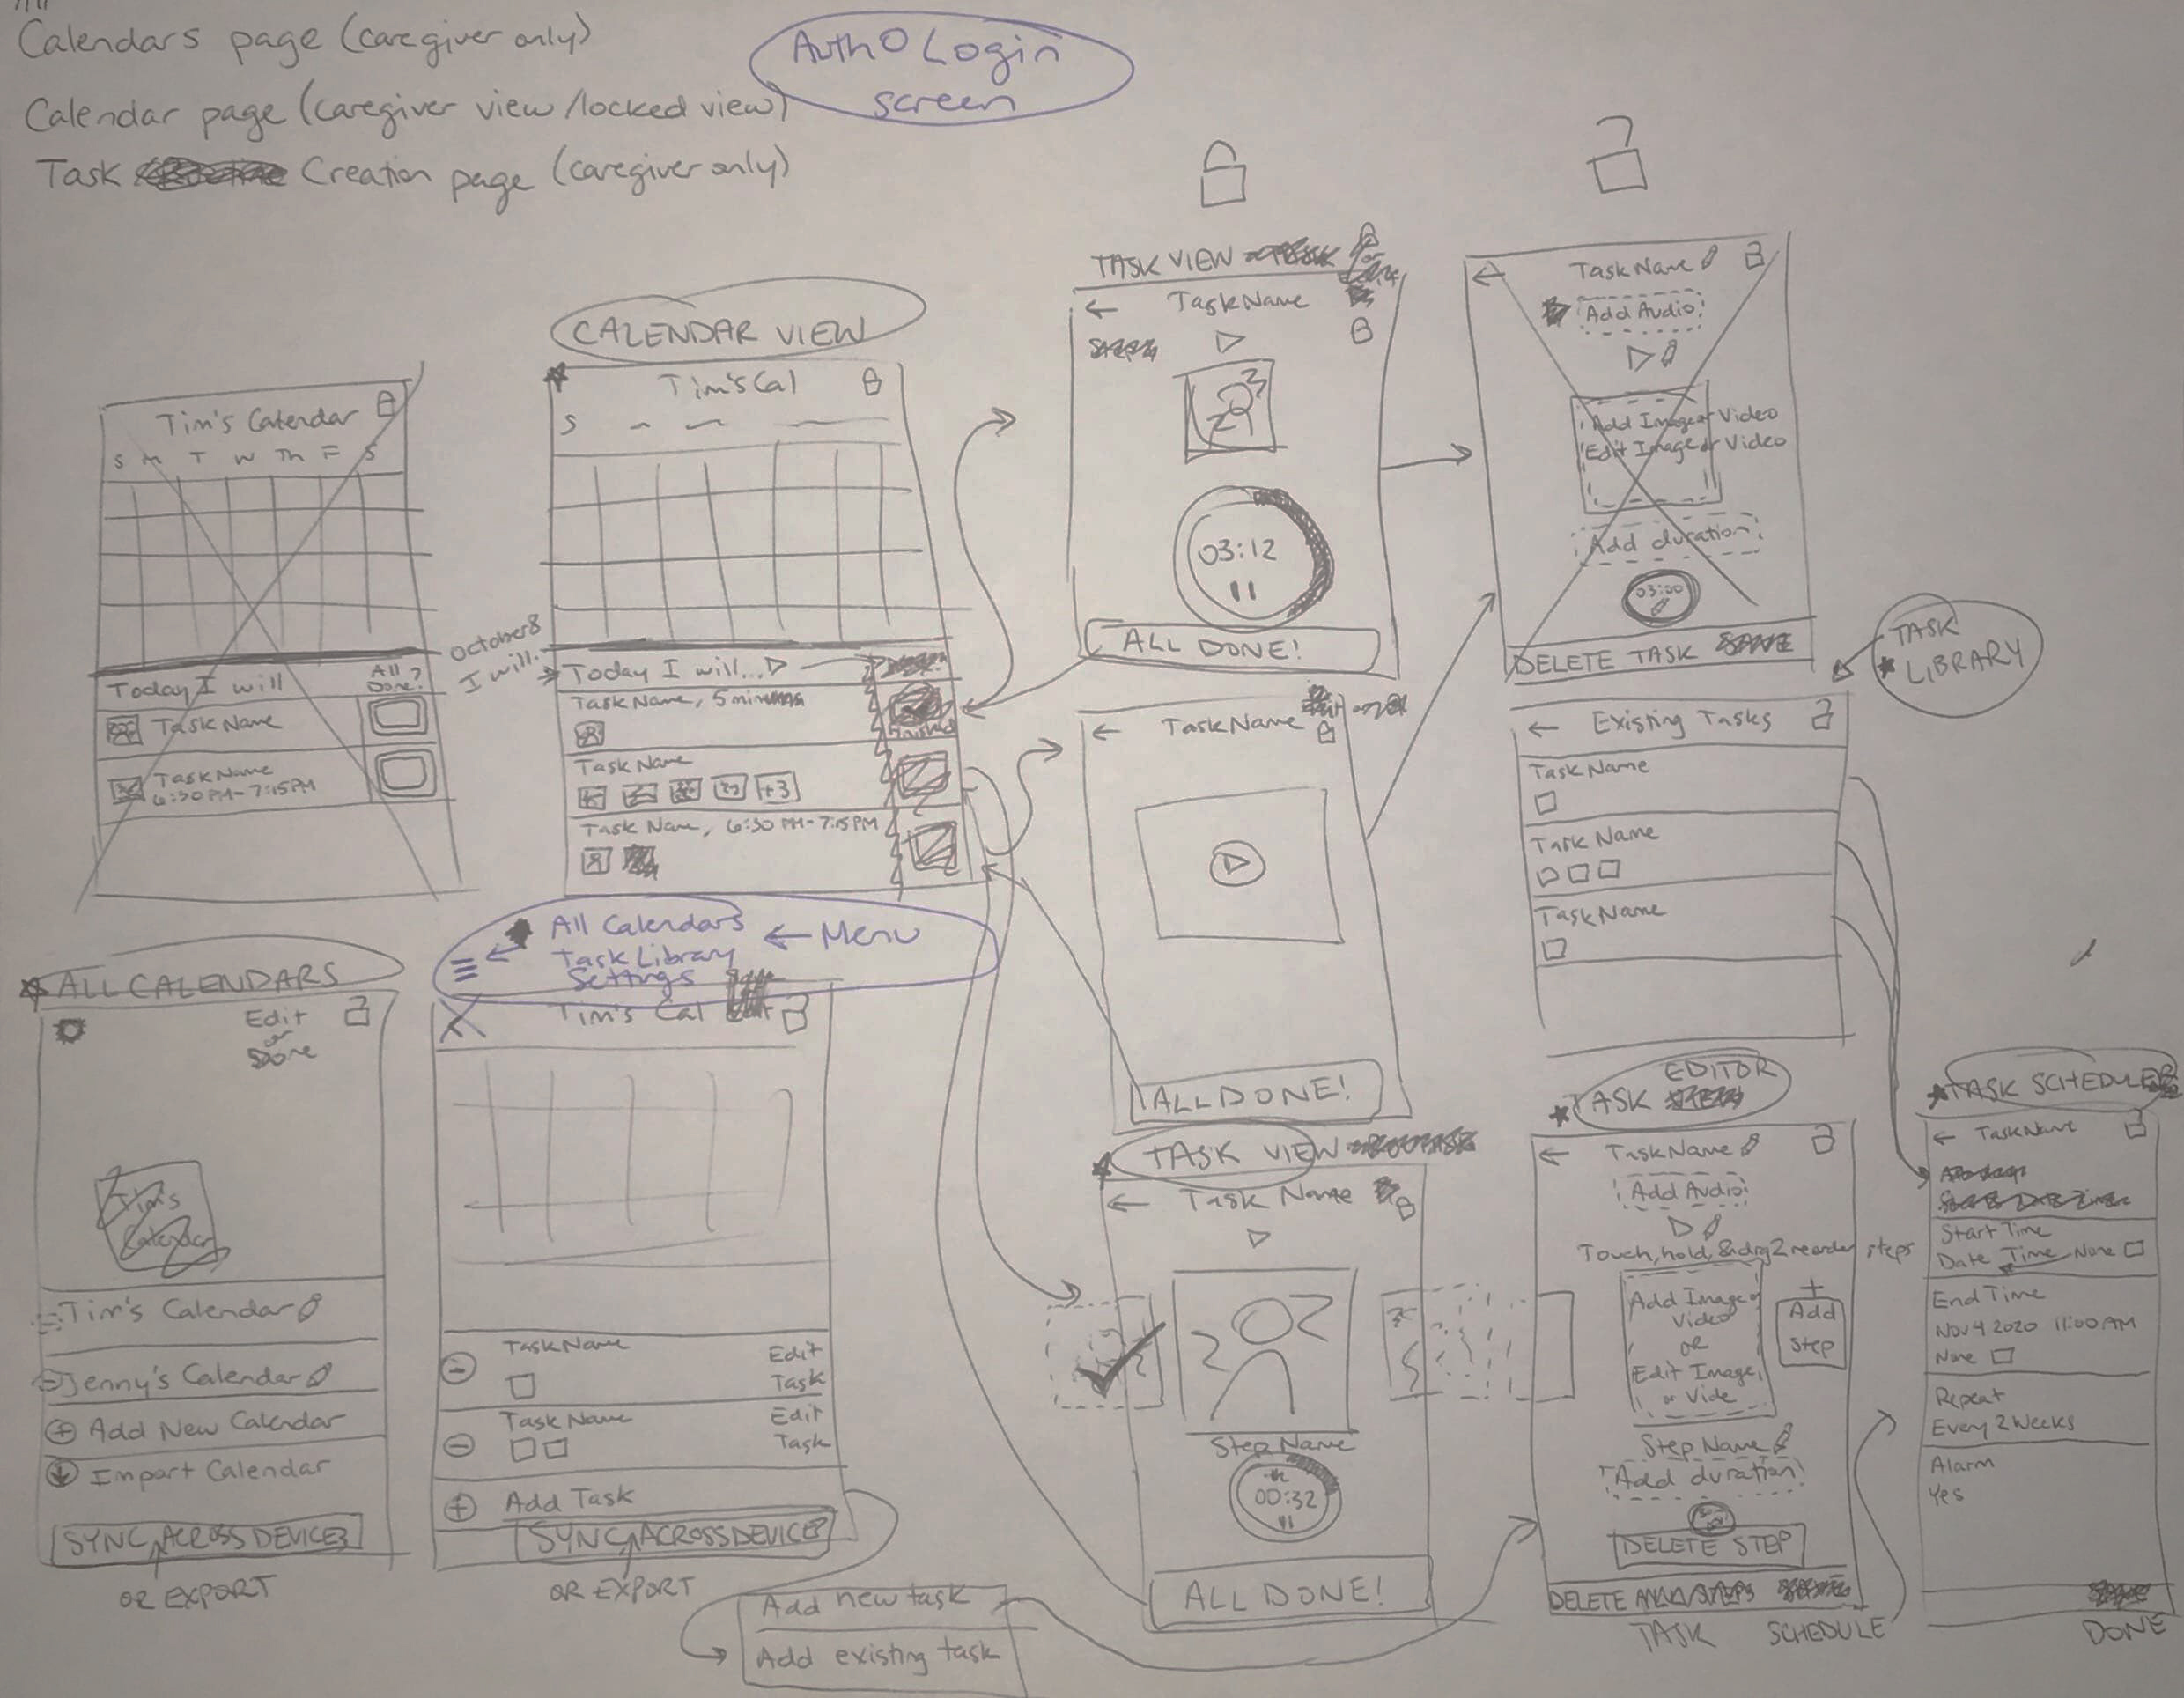 Calendars page (caregiver only)
Calendar page (caregiver view/locked view)
Task Creation page (caregiver only)
Auth0 Login
screen
Tim's Calendar
S M T W Th F S
Today I will
All
Done?
Task Name
Task Name
6:30 PM-7:15PM
October 8
I will..
CALENDAR VIEW
Tim's Cal
S
Today I will...
Task Name, 5 minutes
Finished
Task Name
+3
Task Name, 6:30 PM-7:15PM
TASK VIEW
Task Name
03:12
ALL DONE!
Task Name
ALL DONE!
TASK VIEW
Task Name
Step Name
00:32
ALL DONE!
Task Name
Add Audio
Add Image or Video
Edit Image or Video
Add duration
03:00
DELETE TASK
TASK
LIBRARY
Existing Tasks
Task Name
Task Name
Task Name
ALL CALENDARS
Edit
or
Done
Tim's
Calendar
Tim's Calendar
Jenny's Calendar
Add New Calendar
Import Calendar
SYNC ACROSS DEVICES
OR EXPORT
All Calendars
Task Library
Settings
Menu
Tim's Cal
Task Name
Edit
Task
Task Name
Edit
Task
Add Task
SYNC ACROSS DEVICES
OR EXPORT
Add new task
Add existing task
EDITOR
TASK
Task Name
Add Audio
Touch, hold, & drag 2 reorder steps
Add Image or
Video
OR
Edit Image
or Vide
+
Add
Step
Step Name
Add duration
DELETE STEP
DELETE
TASK
SCHEDULE
TASK SCHEDULER
Task Name
Start Time
Date Time None
End Time
Nov 4 2020 11:00 AM
None
Repeat
Every 2 Weeks
Alarm
Yes
DONE